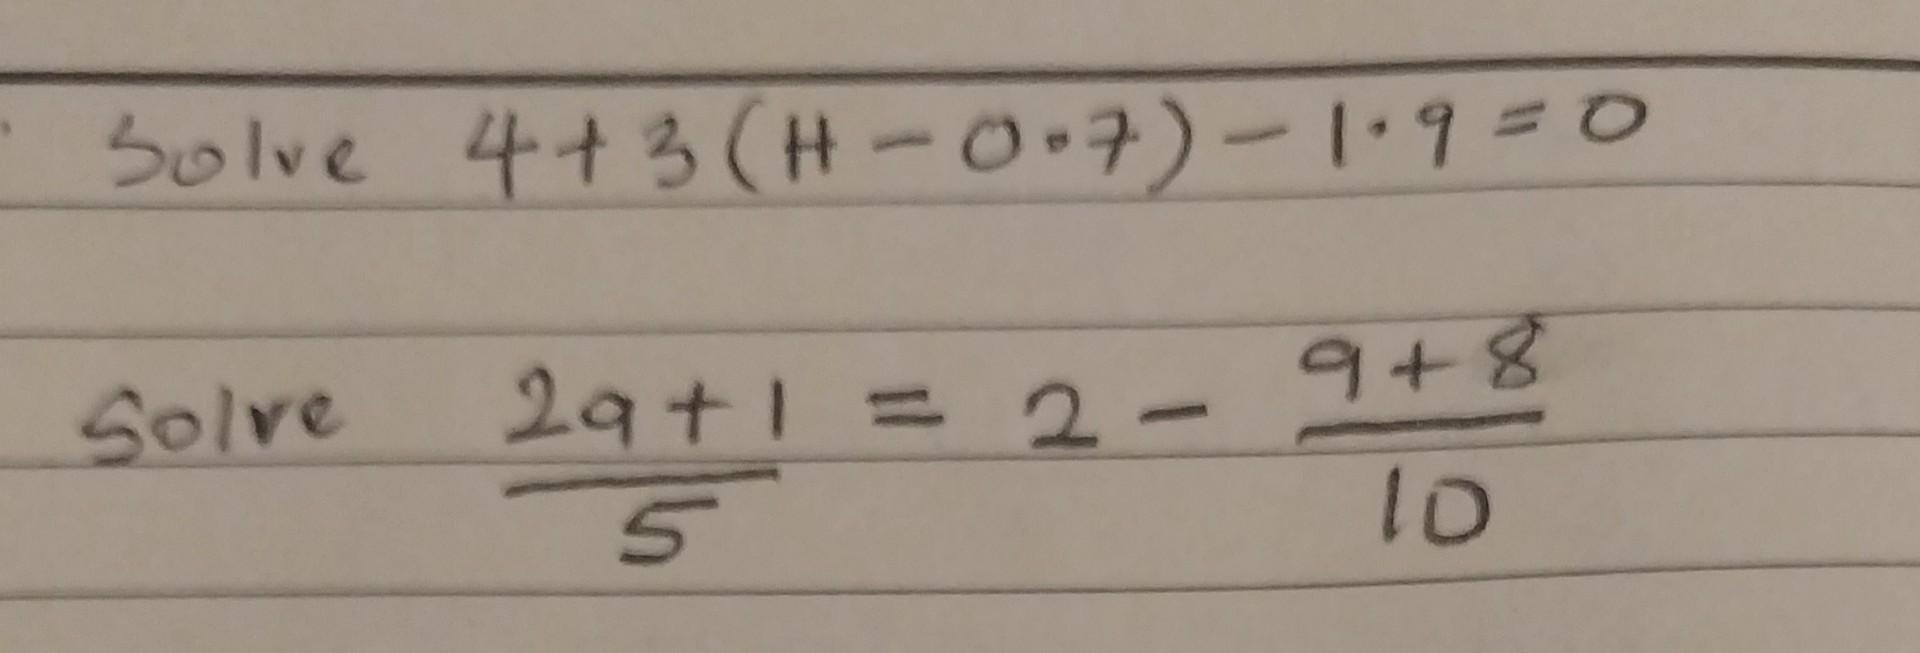 Solve 4+3(H-0.7)-1.9=0
Solve (2q+1)/5 = 2 - (q+8)/10